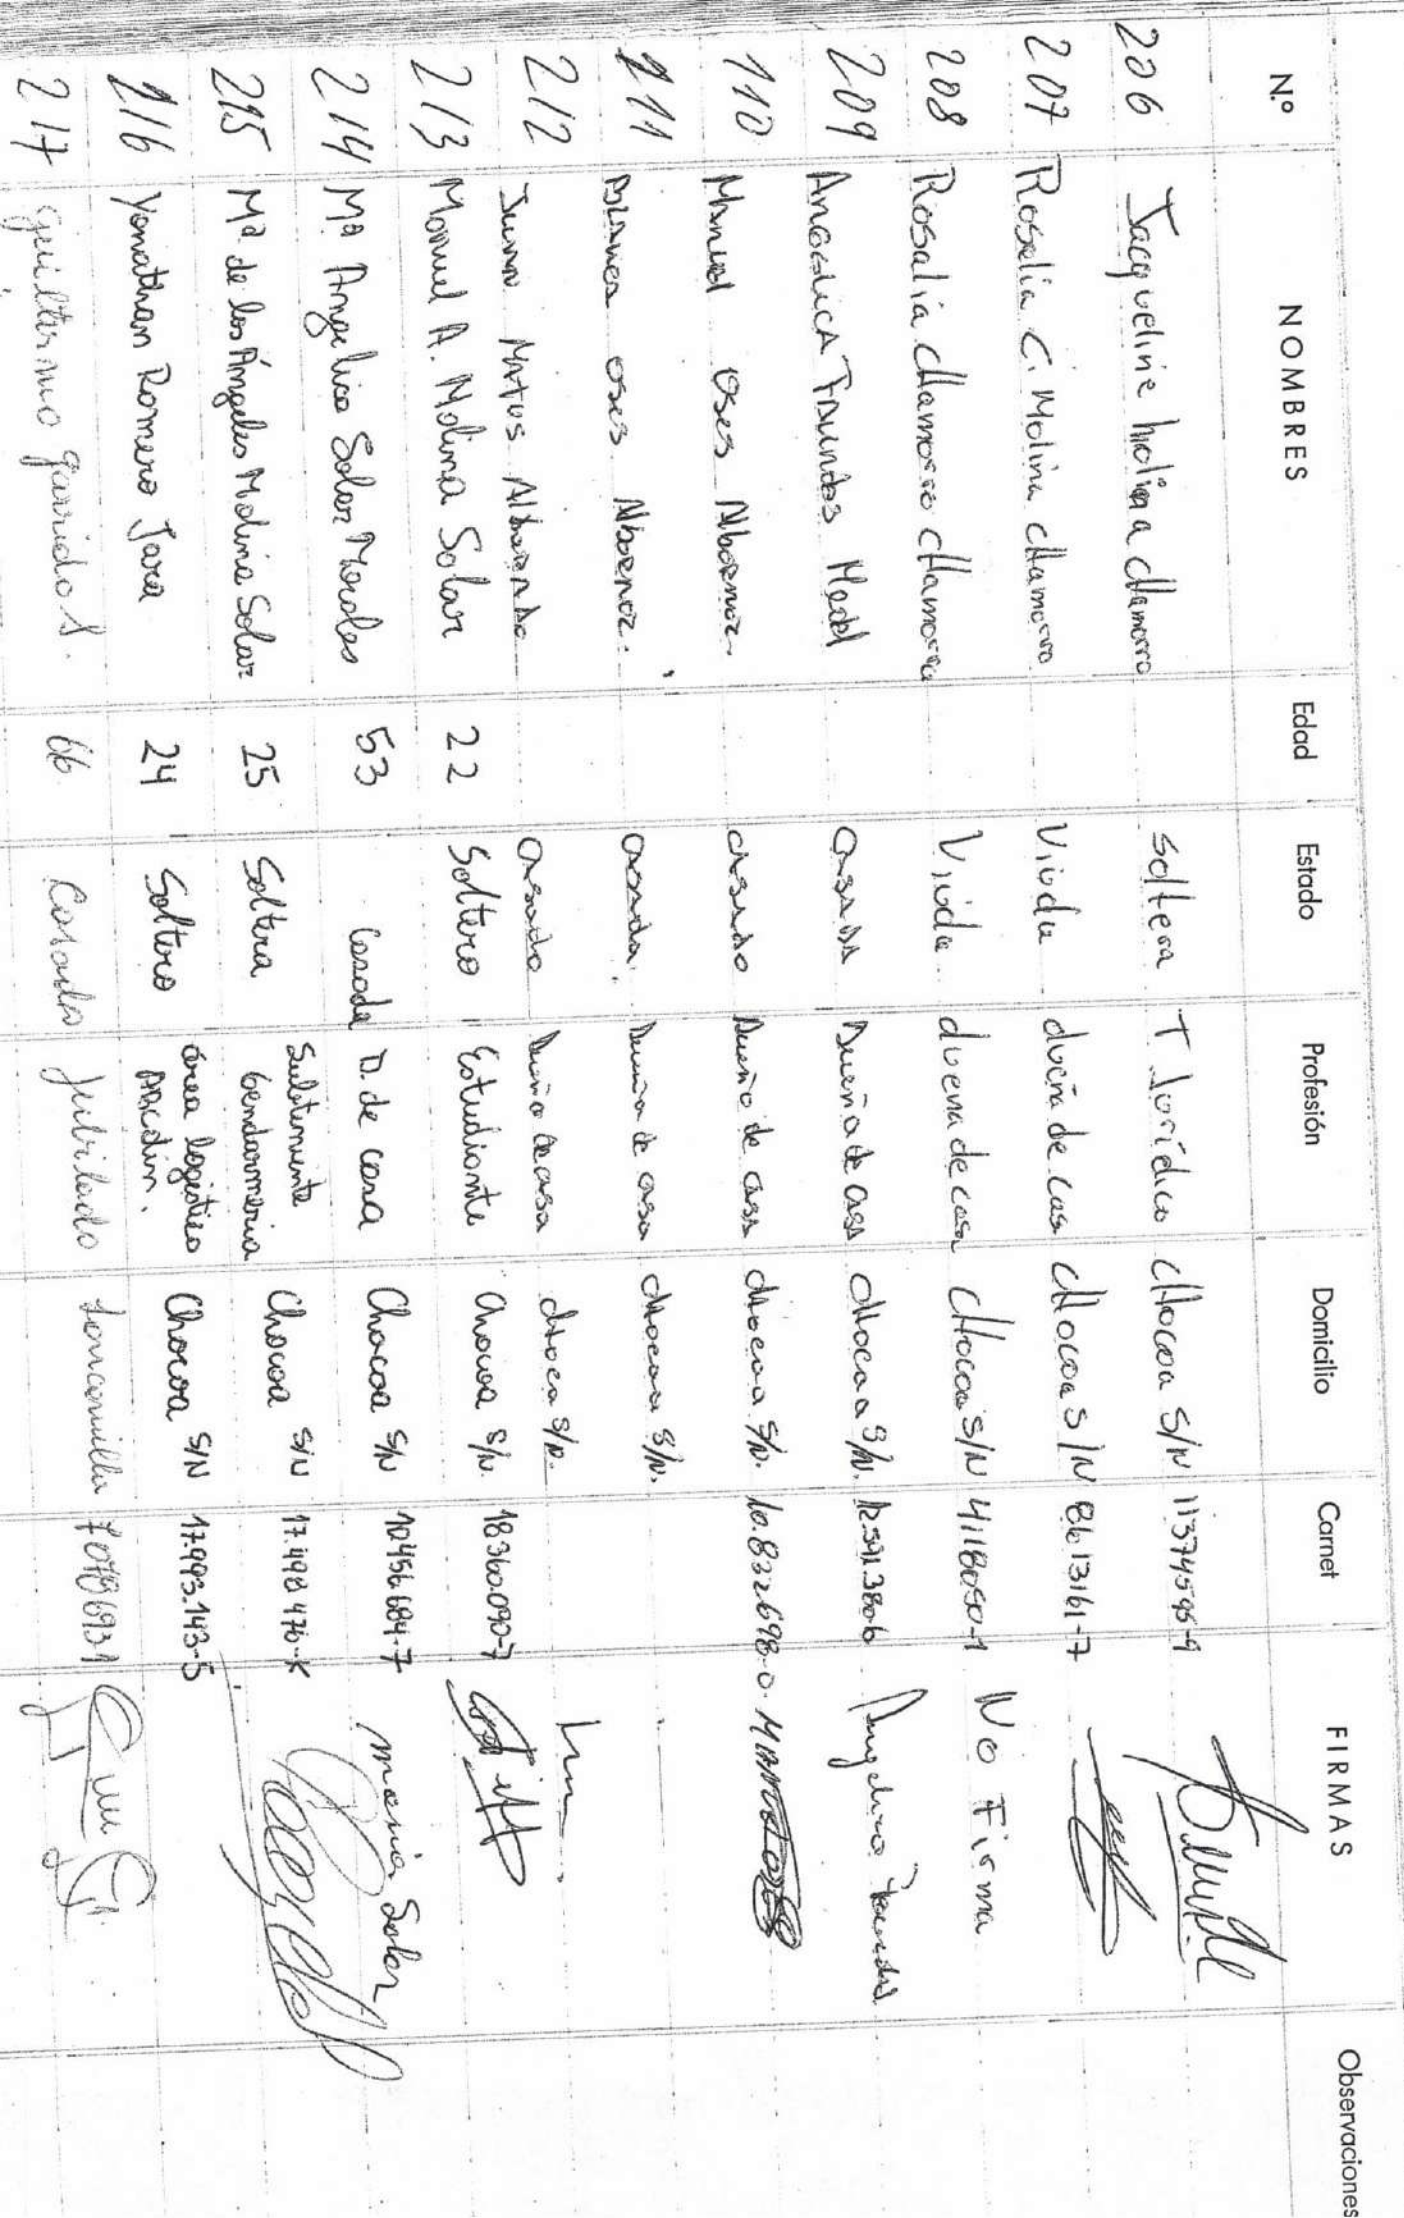 N.º NOMBRES Edad Estado Profesión Domicilio Carnet FIRMAS Observaciones
206 Jacqueline Molina Chamorro soltera T Jurídico Chocoa S/N 11374595-9
207 Roselia C. Molina Chamorro Viuda dueña de casa Chocoa S/N 8613161-7
208 Rosalia Chamorro Chamorro Viuda duena de casa Chocoa S/N 4118050-1 No Firma
209 Angelica Faundes Medel casada Dueña de casa Chocoa S/N. 12.591.380-6 Angelica Faundes
110 Manuel Oses Albornoz casado Dueño de casa Chocoa S/N. 10.832.698-0.
211 Blanca Oses Albornoz. casada. Dueña de casa Chocoa S/N.
212 Juan Matus casado Dueño de casa Chocoa S/N.
213 Manuel A. Molina Solar 22 Soltero Estudiante Chocoa S/N. 18360.090-7
214 Mª Angelica Solar Morales 53 Casada D. de casa Chocoa S/N 10.456.684-7 Maria Solar
215 Mª de los Ángeles Molina Solar 25 Soltera Subteniente Gendarmeria Chocoa S/N 17.498 476-K
216 Yonathan Romero Jara 24 Soltero área logistica ARCdin. Chocoa S/N 17.993.143-5
217 guillermo garrido S. 66 Casado Jubilado Loncomilla 7078693-1